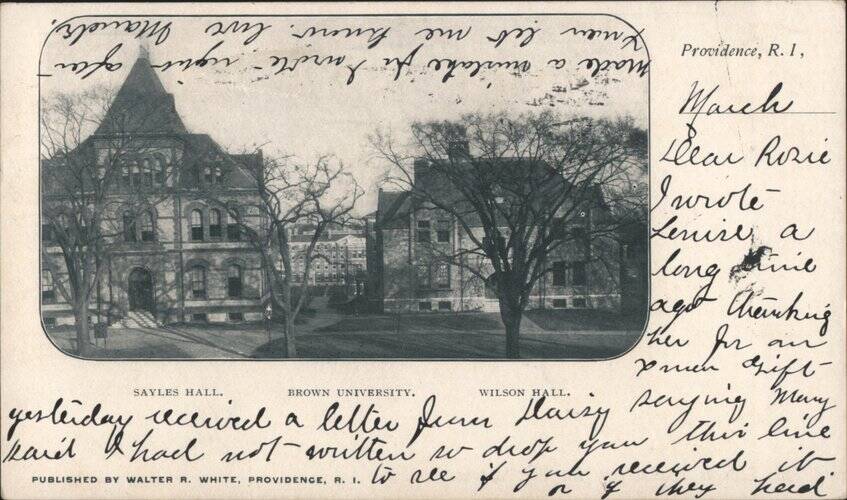 Providence, R. I,
March
Dear Rosie
I wrote
Lenise a
long time
ago thanking
her for an
Xmas Gift-
yesterday received a letter from Daisy saying Mary
said I had not written so drop you this line
to see if you received it
or if they had
made a mistake for I wrote right after
Xmas let me know. love
SAYLES HALL. BROWN UNIVERSITY. WILSON HALL.
PUBLISHED BY WALTER R. WHITE, PROVIDENCE, R. I.